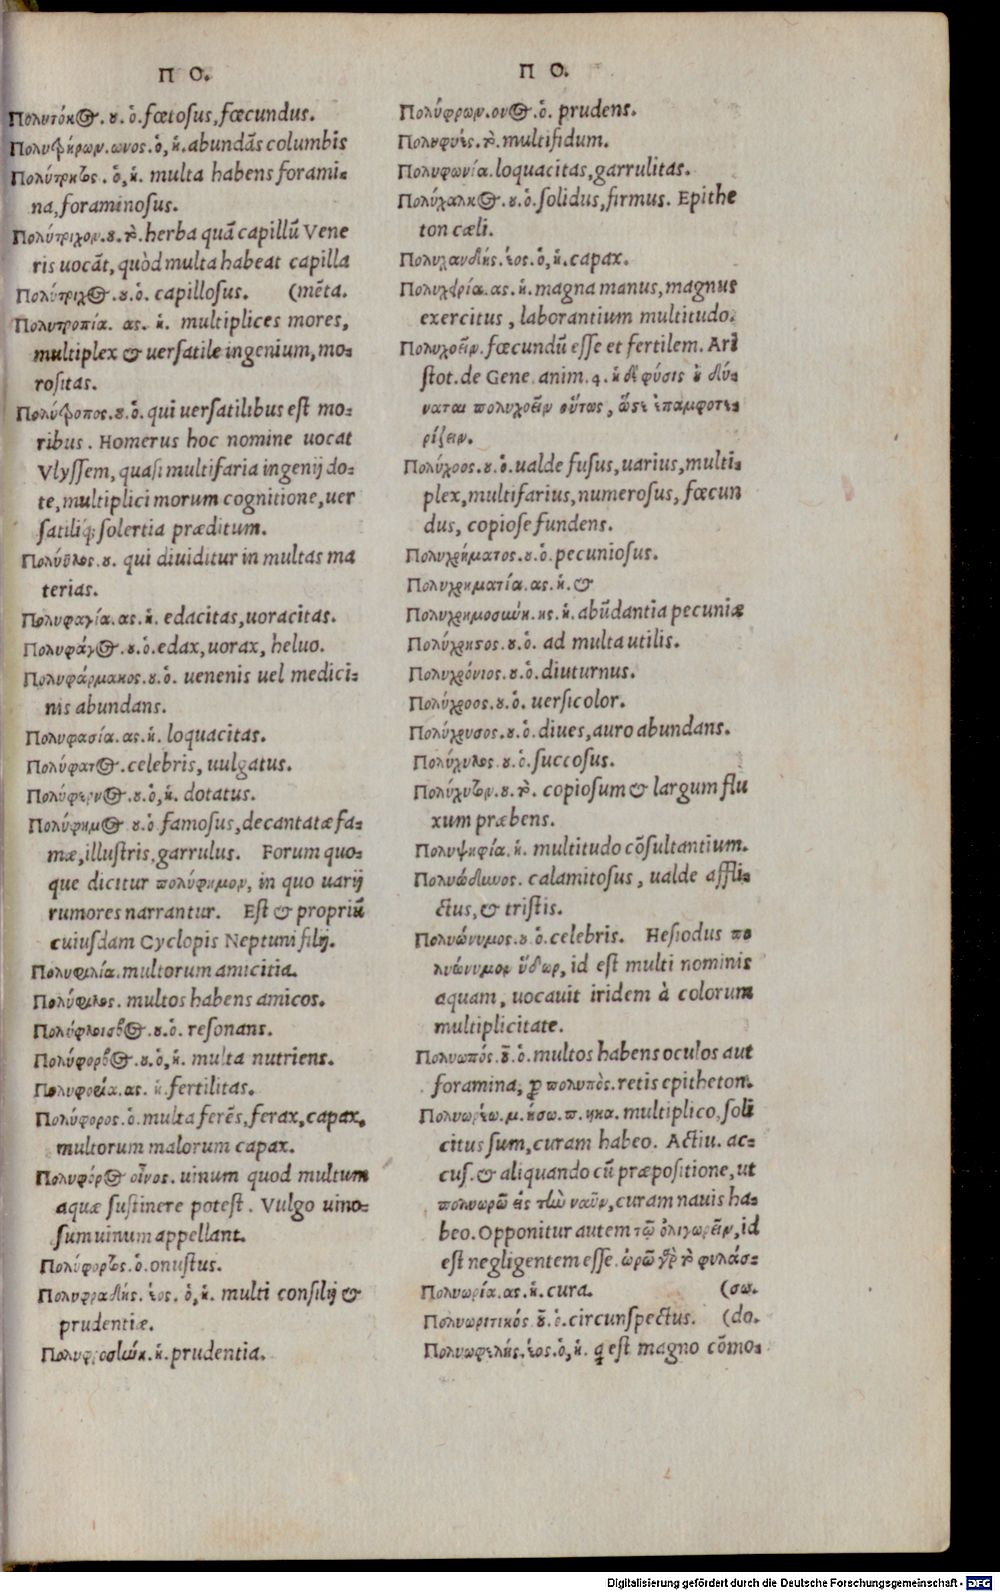 Π Ο.
Πολυτόκος.ου.ὁ.fœtosus,fœcundus.
Πολυτρήρων.ωνος.ὁ,ἡ.abundãs columbis
Πολύτρητος.ὁ,ἡ. multa habens forami-
na,foraminosus.
Πολύτριχον.ου.τὸ.herba quã capillũ Vene
ris uocãt,quòd multa habeat capilla
Πολύτριχος.ου.ὁ. capillosus. (mẽta.
Πολυτροπία. ας. ἡ. multiplices mores,
multiplex & uersatile ingenium,mo-
rositas.
Πολύτροπος.ου.ὁ.qui uersatilibus est mo-
ribus. Homerus hoc nomine uocat
Vlyssem,quasi multifaria ingenij do-
te,multiplici morum cognitione,uer
satiliq; solertia præditum.
Πολύϋλος.ου. qui diuiditur in multas ma
terias.
Πολυφαγία.ας.ἡ. edacitas,uoracitas.
Πολυφάγος.ου.ὁ.edax,uorax, heluo.
Πολυφάρμακος.ου.ὁ. uenenis uel medici-
nis abundans.
Πολυφασία.ας.ἡ. loquacitas.
Πολύφατος.celebris,uulgatus.
Πολύφερνος.ου.ὁ,ἡ. dotatus.
Πολύφημος.ου.ὁ famosus,decantatæ fa-
mæ,illustris,garrulus. Forum quo-
que dicitur πολύφημον, in quo uarij
rumores narrantur. Est & propriũ
cuiusdam Cyclopis Neptuni filij.
Πολυφιλία.multorum amicitia.
Πολύφιλος. multos habens amicos.
Πολύφλοισβος.ου.ὁ. resonans.
Πολύφορβος.ου.ὁ,ἡ. multa nutriens.
Πολυφορία.ας. ἡ fertilitas.
Πολύφορος.ὁ.multa ferẽs,ferax,capax,
multorum malorum capax.
Πολυφόρος οἶνος. uinum quod multum
aquæ sustinere potest. Vulgo uino-
sum uinum appellant.
Πολύφορτος.ὁ.onustus.
Πολυφραδής. έος. ὁ,ἡ. multi consilij &
prudentiæ.
Πολυφροσύνη.ἡ.prudentia.
Π Ο.
Πολύφρων.ονος.ὁ. prudens.
Πολυφυές.τὸ.multifidum.
Πολυφωνία.loquacitas,garrulitas.
Πολύχαλκος.ου.ὁ.solidus,firmus. Epithe
ton cæli.
Πολυχανδής.έος.ὁ,ἡ.capax.
Πολυχειρία.ας.ἡ.magna manus,magnus
exercitus, laborantium multitudo.
Πολυχοεῖν.fœcundũ esse et fertilem. Ari
stot.de Gene.anim.4. ἡ δὲ φύσις οὐ δύ-
ναται πολυχοεῖν οὕτως, ὥστε ἐπαμφοτε-
ρίζειν.
Πολύχοος.ου.ὁ.ualde fusus,uarius,multi-
plex,multifarius,numerosus, fœcun
dus, copiose fundens.
Πολυχρήματος.ου.ὁ.pecuniosus.
Πολυχρηματία.ας.ἡ.&
Πολυχρημοσύνη.ης.ἡ.abũdantia pecuniæ
Πολύχρηστος.ου.ὁ. ad multa utilis.
Πολυχρόνιος.ου.ὁ.diuturnus.
Πολύχροος.ου.ὁ. uersicolor.
Πολύχρυσος.ου.ὁ.diues,auro abundans.
Πολύχυλος.ου.ὁ.succosus.
Πολύχυτον.ου.τὸ. copiosum & largum flu
xum præbens.
Πολυψηφία.ἡ. multitudo cõsultantium.
Πολυώδυνος. calamitosus, ualde affli-
ctus,& tristis.
Πολυώνυμος.ου.ὁ.celebris. Hesiodus πο
λυώνυμον ὕδωρ, id est multi nominis
aquam, uocauit iridem à colorum
multiplicitate.
Πολυωπός.οῦ.ὁ.multos habens oculos aut
foramina, ꝓ πολυπὸς.retis epitheton.
Πολυωρέω.μ.ήσω.π.ηκα.multiplico,soli
citus sum,curam habeo. Actiu. ac-
cus.& aliquando cũ præpositione,ut
πολυωρῶ εἰς τὴν ναῦν,curam nauis ha-
beo.Opponitur autem τῷ ὀλιγωρεῖν,id
est negligentem esse. ὠρῶ γὸ τὸ φυλάσ-
Πολυωρία.ας.ἡ.cura. (σω.
Πολυωριτικός οῦ.ὁ.circunspectus. (do.
Πολυωφελής.έος.ὁ,ἡ. q est magno cõmo-
Digitalisierung gefördert durch die Deutsche Forschungsgemeinschaft - DFG